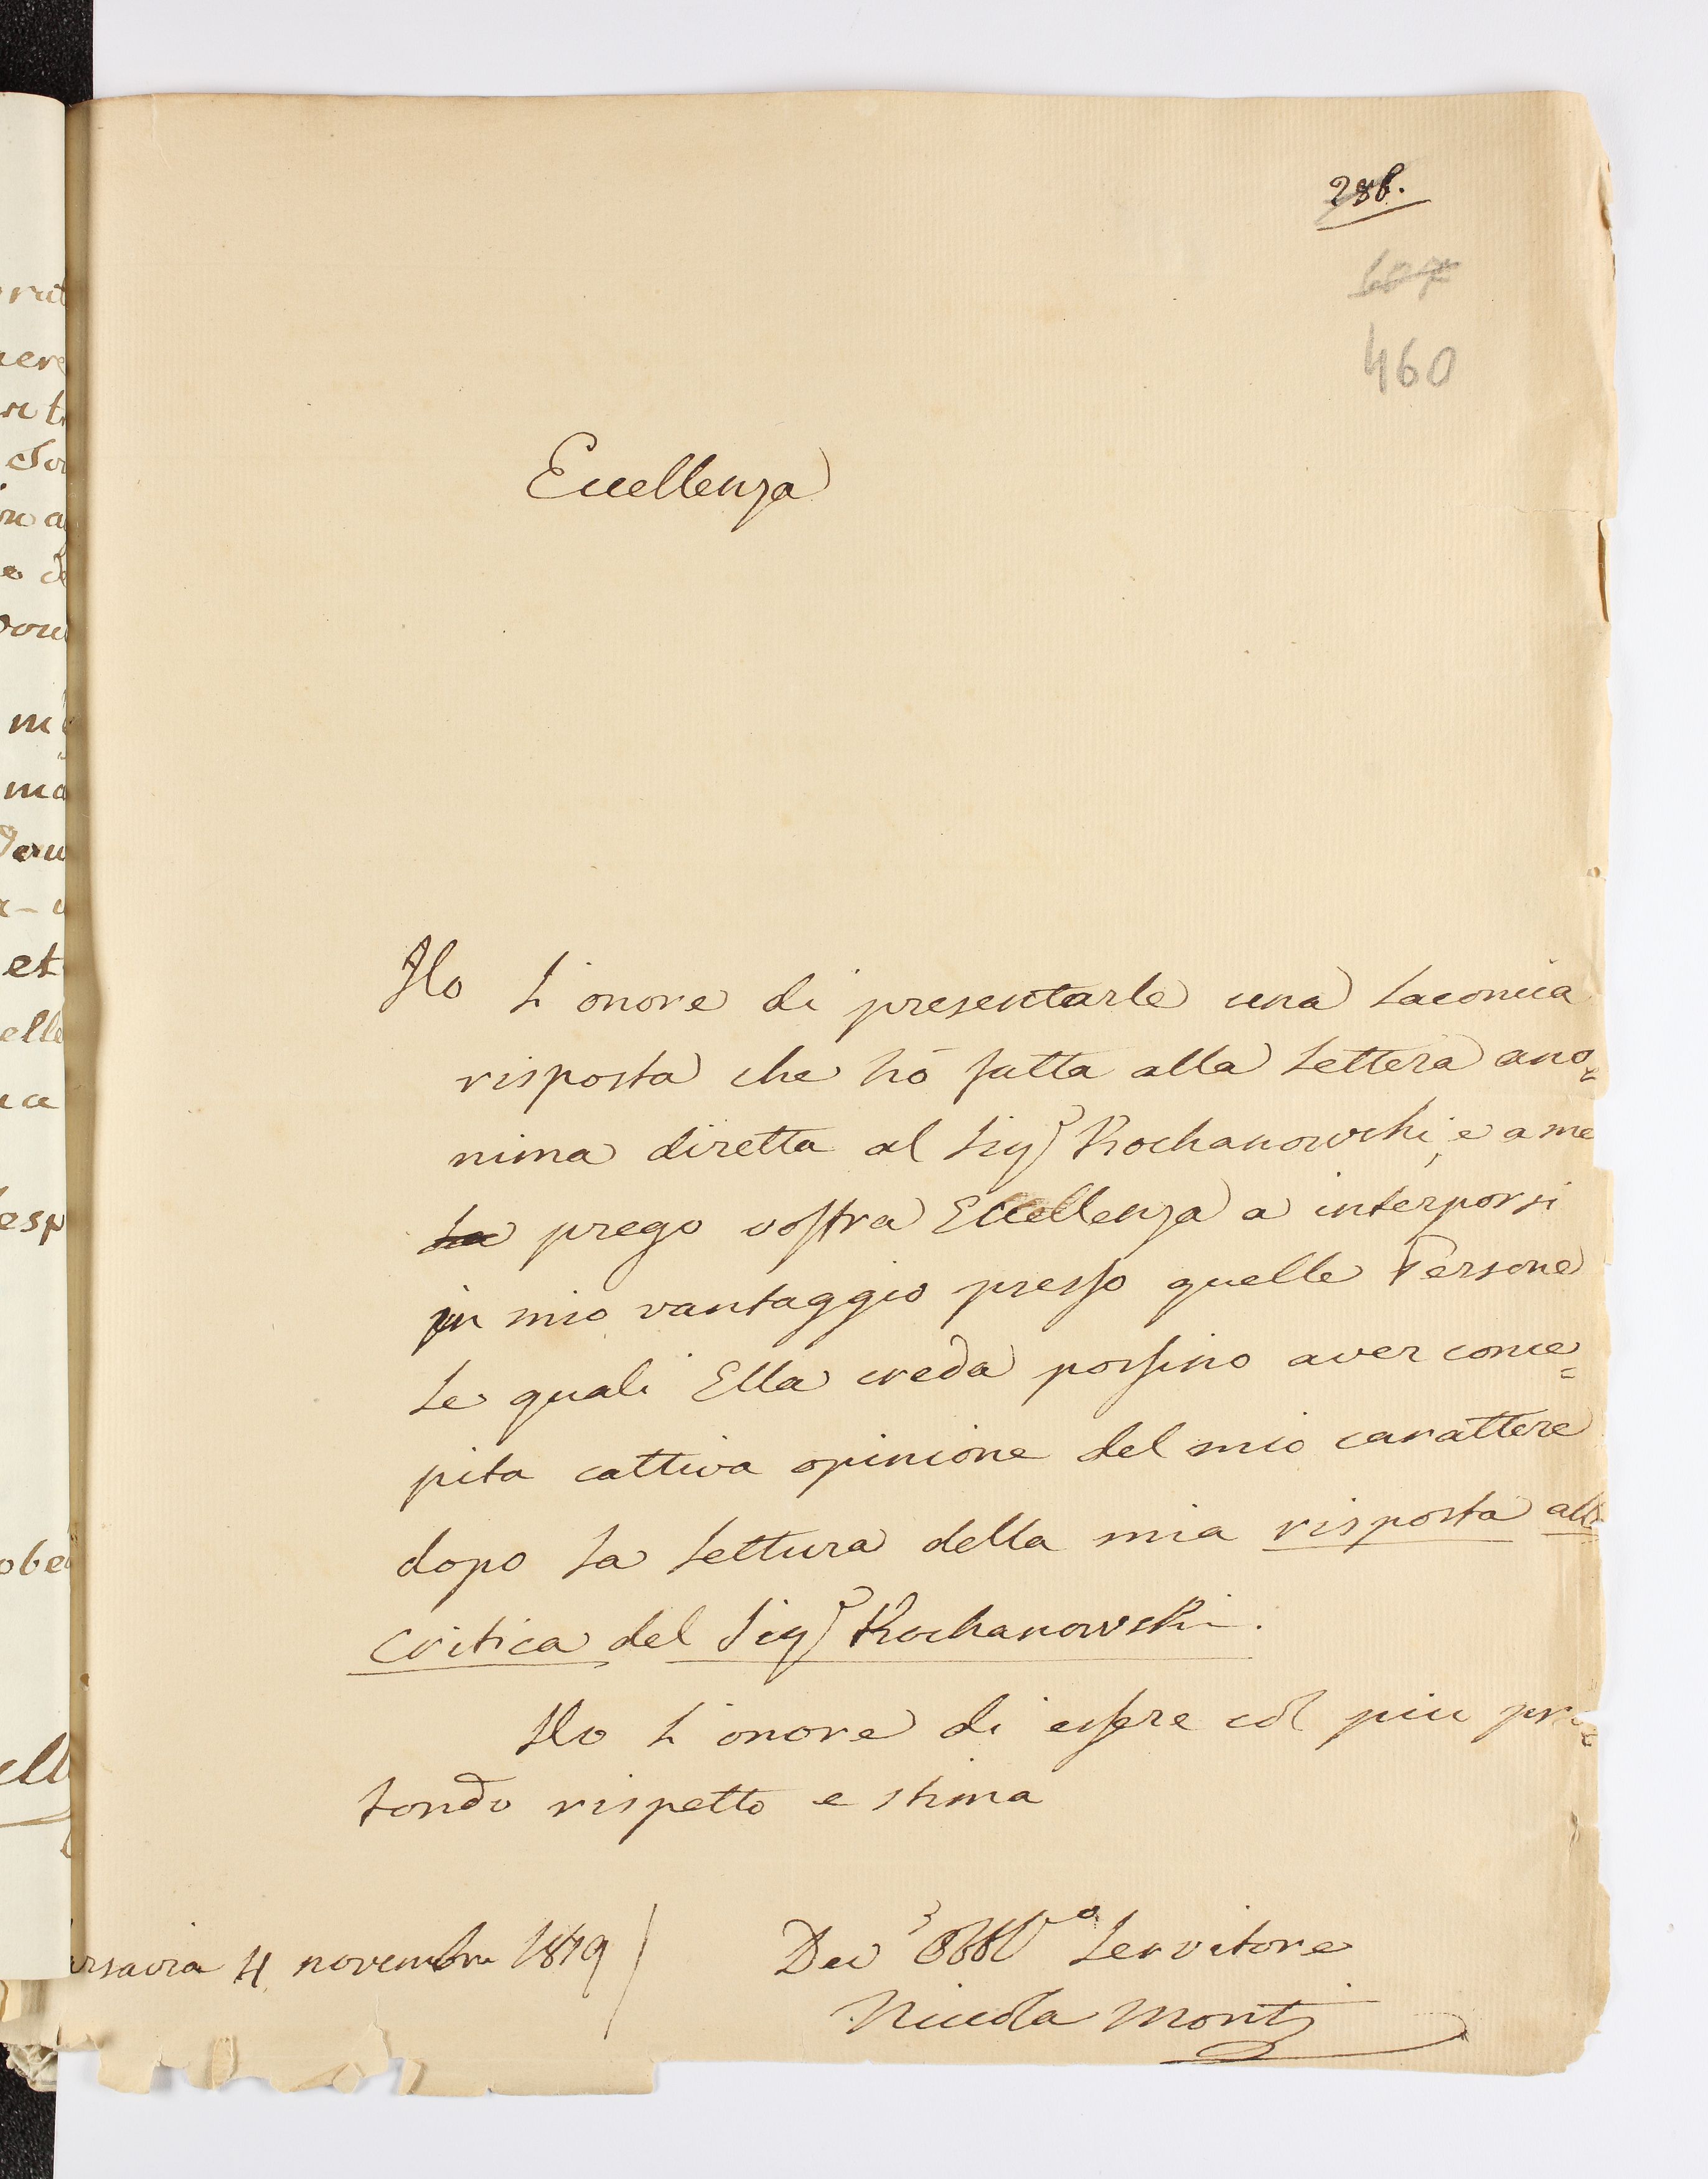 286.
460
Eccellenza
Ho L'onore di presentarle una Laconica
risposta che hò fatta alla Lettera ano=
nima diretta al Sigr Kochanowski, e a me
La prego vostra Eccellenza a interporsi
in mio vantaggio presso quelle Persone
Le quali Ella creda possino aver conce=
pita cattiva opinione del mio carattere
dopo La Lettura della mia risposta alla
critica del Sigr Kochanowski.
Ho L'onore di essere col piu pro=
fondo rispetto e stima
4 novembre 1819
Dev Obblo Servitore
Nicola Monti